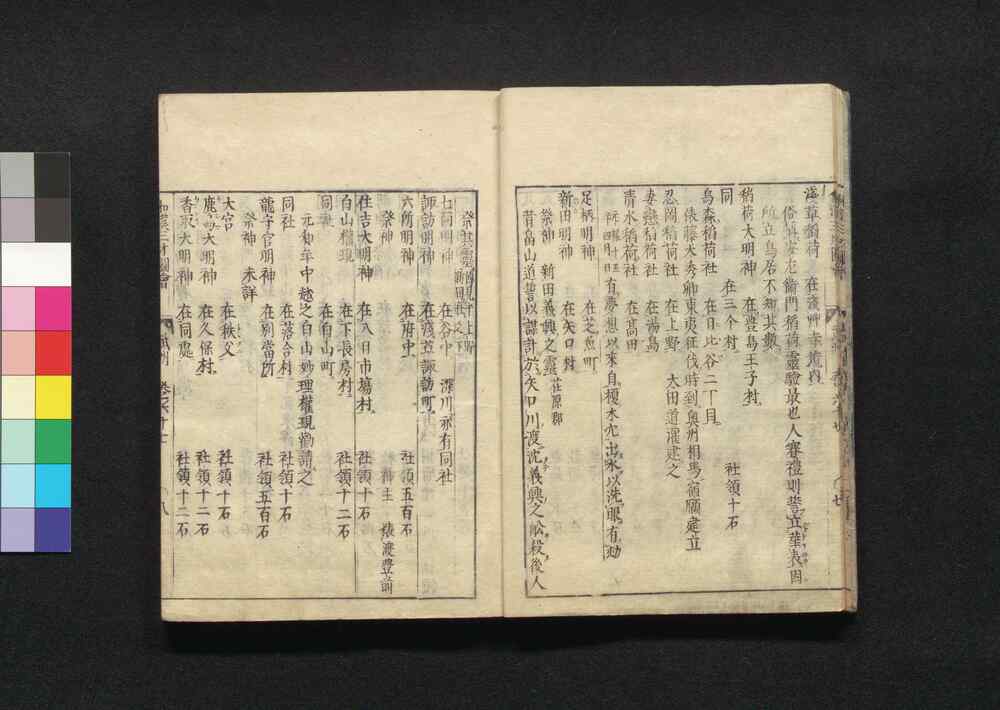 淺草稻荷 在淺艸
俗稱安左衞門稻荷靈驗最也人賽禮則造立華表因
所立鳥居不知其數
稻荷大明神 在豊島王子村
同 在三个村 社領十石
烏森稻荷社 在日比谷二丁目
俵藤太秀卿東夷征伐時到奥州相馬宿願建立
忍岡稻荷社 在上野 太田道灌建之
妻戀稻荷社 在湯島
清水稻荷社 在高田
有夢想以來自榎木穴出水以洗眼有効
足柄明神 在芝魚町
新田明神 在矢口村
祭神 新田義興之靈 荏原郡
昔畠山道誓以謀計於矢口川渡沈義興之舩殺後人
祭其靈
七面明神 在谷中 深川亦有同社
諏訪明神 在淺草諏訪町
六所明神 在府中 社領五百石
祭神 神主 猿渡豊前
住吉大明神 在八日市塲村 社領十石
白山權現 在下長房村 社領十二石
同 在白山町
元和年中越之白山妙理權現勸請之
同社 在落合村 社領十石
龍守宮明神 在別當所 社領五百石
祭神 未詳
大宮 在秩父 社領十石
鹿嶋大明神 在久保村 社領十二石
香取大明神 在同處 社領十二石